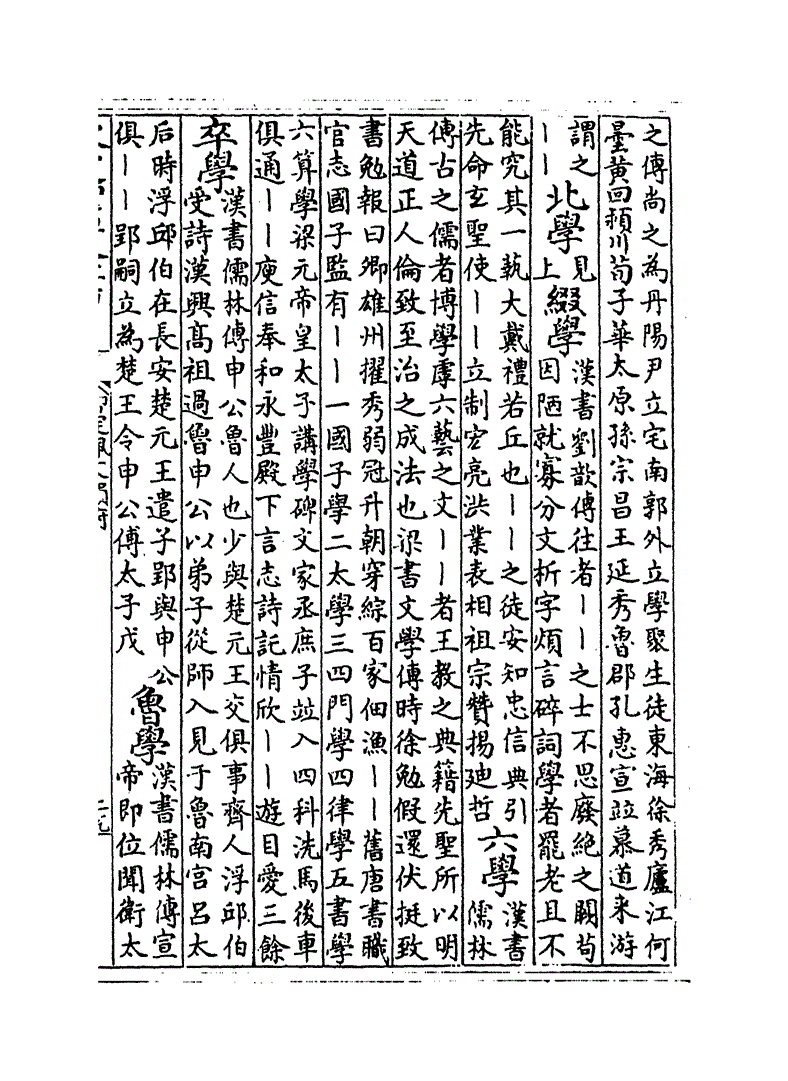 之傳尚之為丹陽尹立宅南郭外立學聚生徒東海徐秀廬江何
曇黃回潁川荀子華太原孫宗昌王延秀魯郡孔惠宣竝慕道来游
謂之
——
北學
見
上
綴學
漢書劉歆傳往者——之士不思廢絶之闕茍
因陋就寡分文析字煩言碎詞學者罷老且不
能究其一埶大戴禮若丘也——之徒安知忠信典引
先命玄聖使——立制宏亮洪業表相祖宗贊揚廸哲
六學
漢書
儒林
傳古之儒者博學虖六藝之文——者王教之典籍先聖所以明
天道正人倫致至治之成法也梁書文學傳時徐勉假還伏挺致
書勉報曰卿雄州擢秀弱冠升朝穿綜百家佃漁——舊唐書職
官志國子監有——一國子學二太學三四門學四律學五書學
六算學梁元帝皇太子講學碑文家丞庶子竝入四科洗馬後車
俱通——庾信奉和永豐殿下言志詩託情欣——遊目愛三餘
卒學
漢書儒林傳申公魯人也少與楚元王交俱事齊人浮邱伯
受詩漢興髙祖過魯申公以弟子從師入見于魯南宫吕太
后時浮邱伯在長安楚元王遣子郢與申公
俱——郢嗣立為楚王令申公傅太子戊
魯學
漢書儒林傳宣
帝即位聞衛太